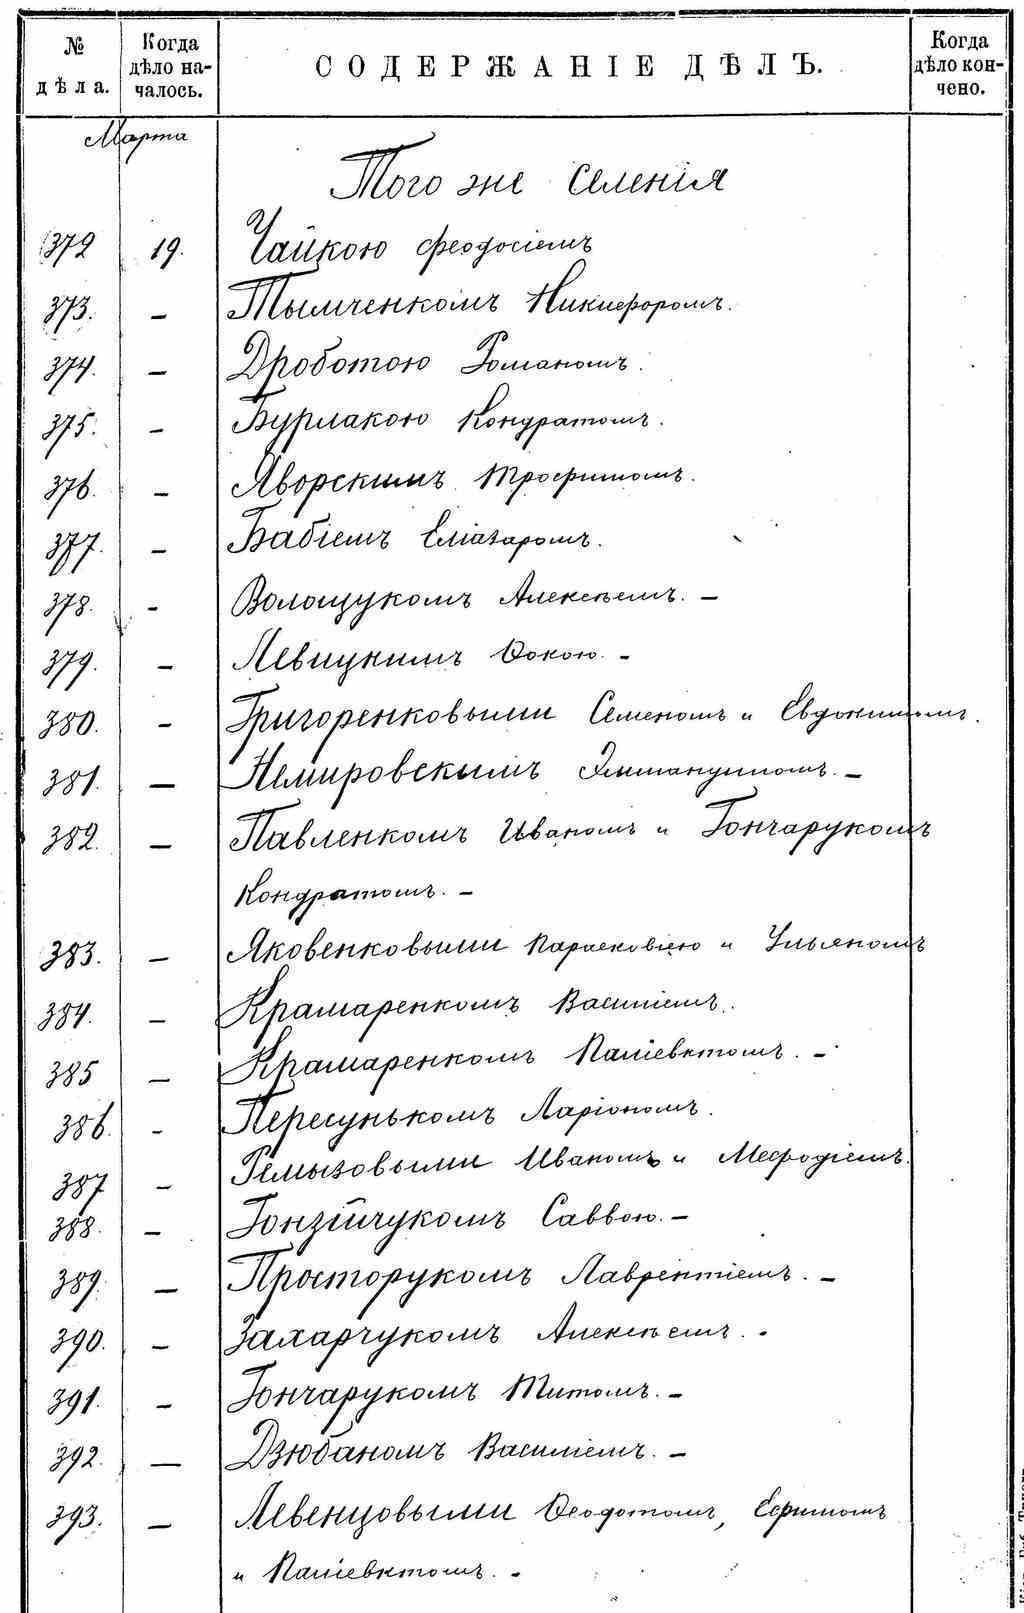 № дѣла. Когда дѣло началось. СОДЕРЖАНІЕ ДѢЛЪ. Когда дѣло кончено.
Марта
Того же Селенія
372 19. Чайкою Феодосіемъ
373. — Тымченкомъ Никифоромъ.
374. — Дроботою Романомъ.
375. — Бурлакою Кондратомъ.
376. — Яворскимъ Трофимомъ.
377. — Бабіемъ Еліазаромъ.
378. - Волощукомъ Алексѣемъ. —
379. — Левицкимъ Фокою. -
380. - Григоренковыми Семеномъ и Евдокимомъ.
381. — Немировскымъ Эммануиломъ. —
382. — Павленкомъ Иваномъ и Гончарукомъ
Кондратомъ. —
383. — Яковенковыми Парасковіею и Ульяномъ
384. — Крамаренкомъ Василіемъ.
385 — Крамаренкомъ Поліевктомъ. -
386. - Пересунькомъ Ларіономъ.
387 - Ремызовыми Иваномъ и Мефодіемъ.
388. - Гонзійчукомъ Саввою. —
389. — Просторукомъ Лаврентіемъ. —
390. — Захарчукомъ Алексѣемъ. -
391. - Гончарукомъ Титомъ. —
392. — Дзюбаномъ Василіемъ. —
393. — Левенцовыми Феодотомъ, Ефимомъ
и Поліевктомъ. -